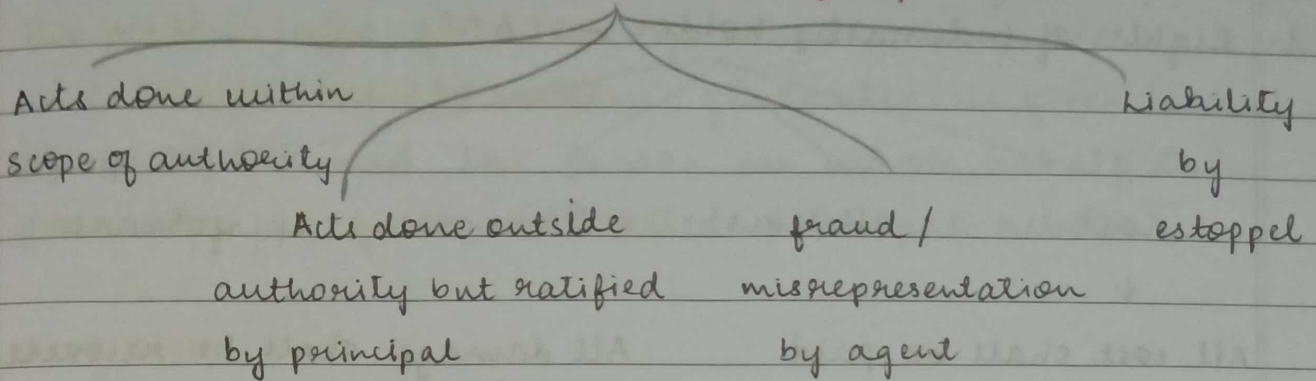 Acts done within
scope of authority
Acts done outside
authority but ratified
by principal
fraud /
misrepresentation
by agent
Liability
by
estoppel